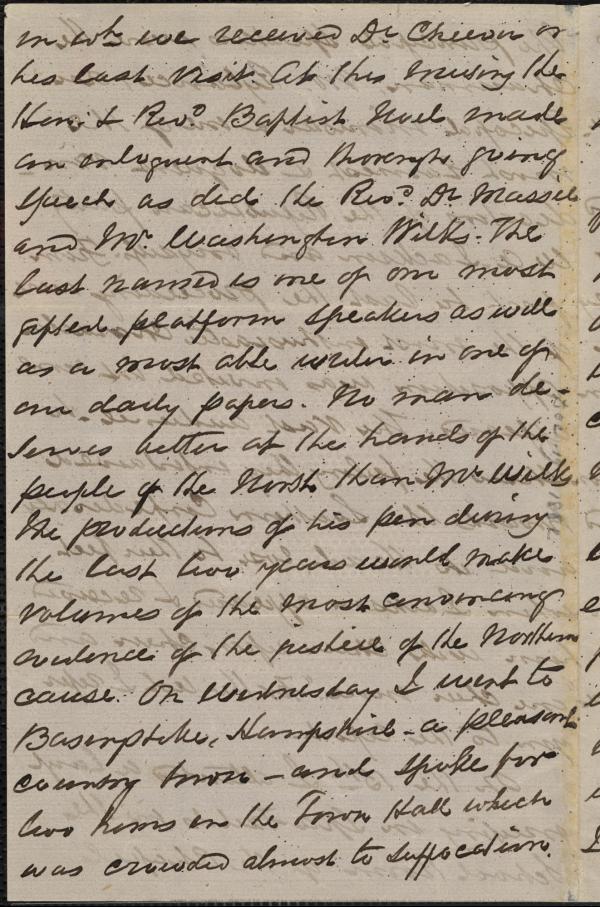 in wh. we received Dr. Cheever on
his last visit. At this meeting the
Hon. & Revd. Baptist Noel made
an eloquent and thorough going
speech as did the Revd. Dr. Massie
and Mr. Washington Wilks. The
last named is one of our most
gifted platform speakers as well
as a most able writer in one of
our daily papers. No man de-
serves better at the hands of the
people of the North than Mr. Wilks
The productions of his pen during
the last two years would make
volumes of the most convincing
evidence of the justice of the Northern
cause. On Wednesday I went to
Basingstoke, Hampshire - a pleasant
country town - and spoke for
two hours in the Town Hall which
was crowded almost to suffocation.